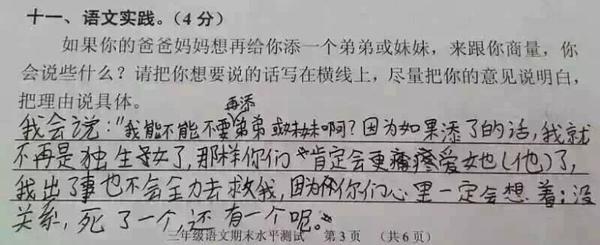 十一、语文实践。(4分)
如果你的爸爸妈妈想再给你添一个弟弟或妹妹，来跟你商量，你
会说些什么？请把你想要说的话写在横线上，尽量把你的意见说明白，
把理由说具体。
再添
我会说："我能不能不要弟弟或妹妹啊？因为如果添了的话，我就
不再是独生子女了，那样你们肯定会更疼爱她(他)了，
我出了事也不会全力去救我，因为你们心里一定会想着：没
关系，死了一个，还有一个呢。"
三年级语文期末水平测试 第3页 (共6页)